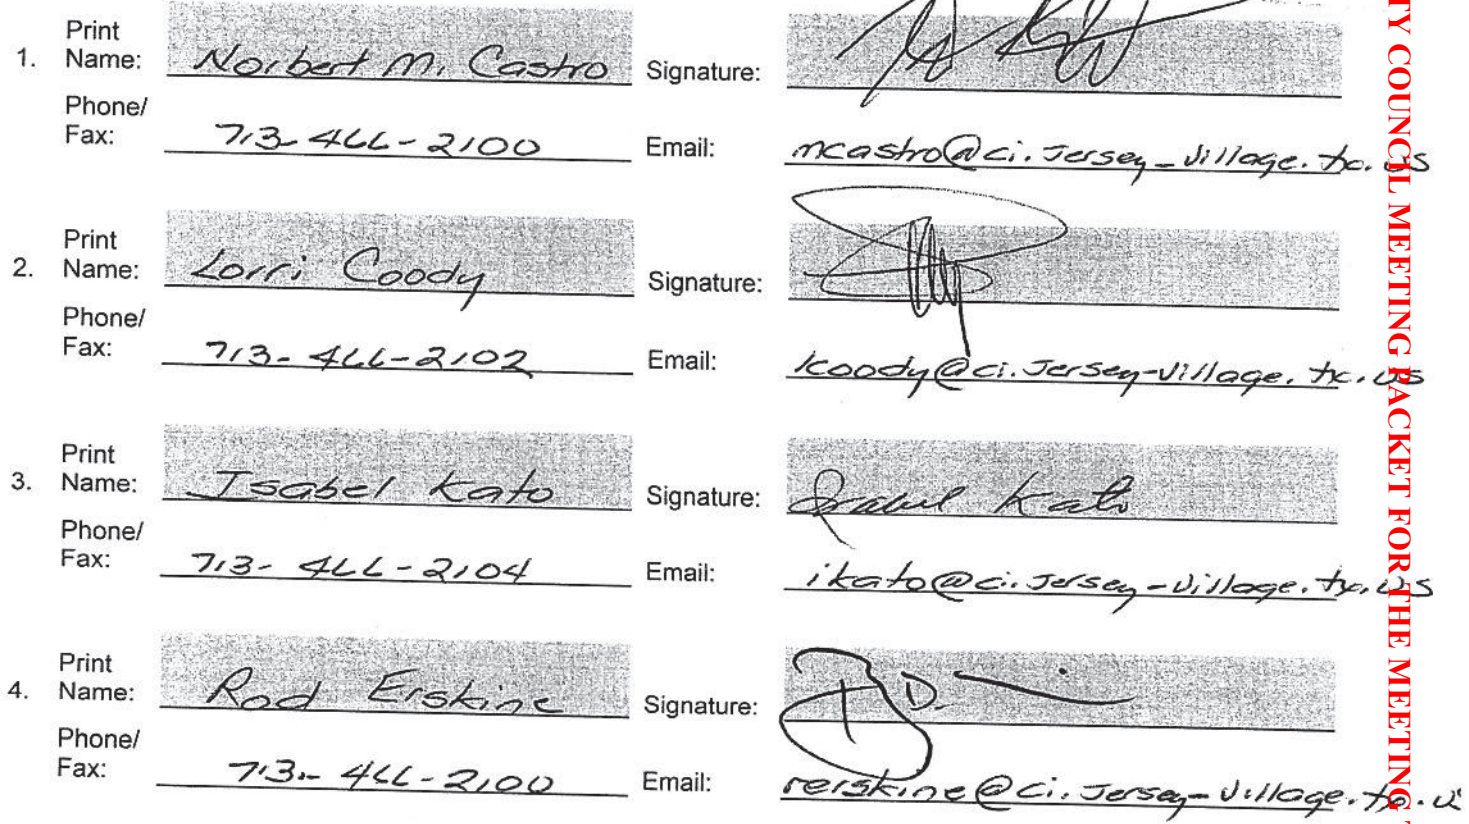 Print
1. Name: Norbert M. Castro Signature:
Phone/
Fax: 713-466-2100 Email: mcastro@ci.Jersey-Village.tx.us
Print
2. Name: Lorri Coody Signature:
Phone/
Fax: 713-466-2102 Email: lcoody@ci.Jersey-Village.tx.us
Print
3. Name: Isabel Kato Signature: Isabel Kato
Phone/
Fax: 713-466-2104 Email: ikato@ci.Jersey-Village.tx.us
Print
4. Name: Rod Erskine Signature:
Phone/
Fax: 713-466-2100 Email: rerskine@ci.Jersey-Village.tx.u
TY COUNCIL MEETING PACKET FOR THE MEETING